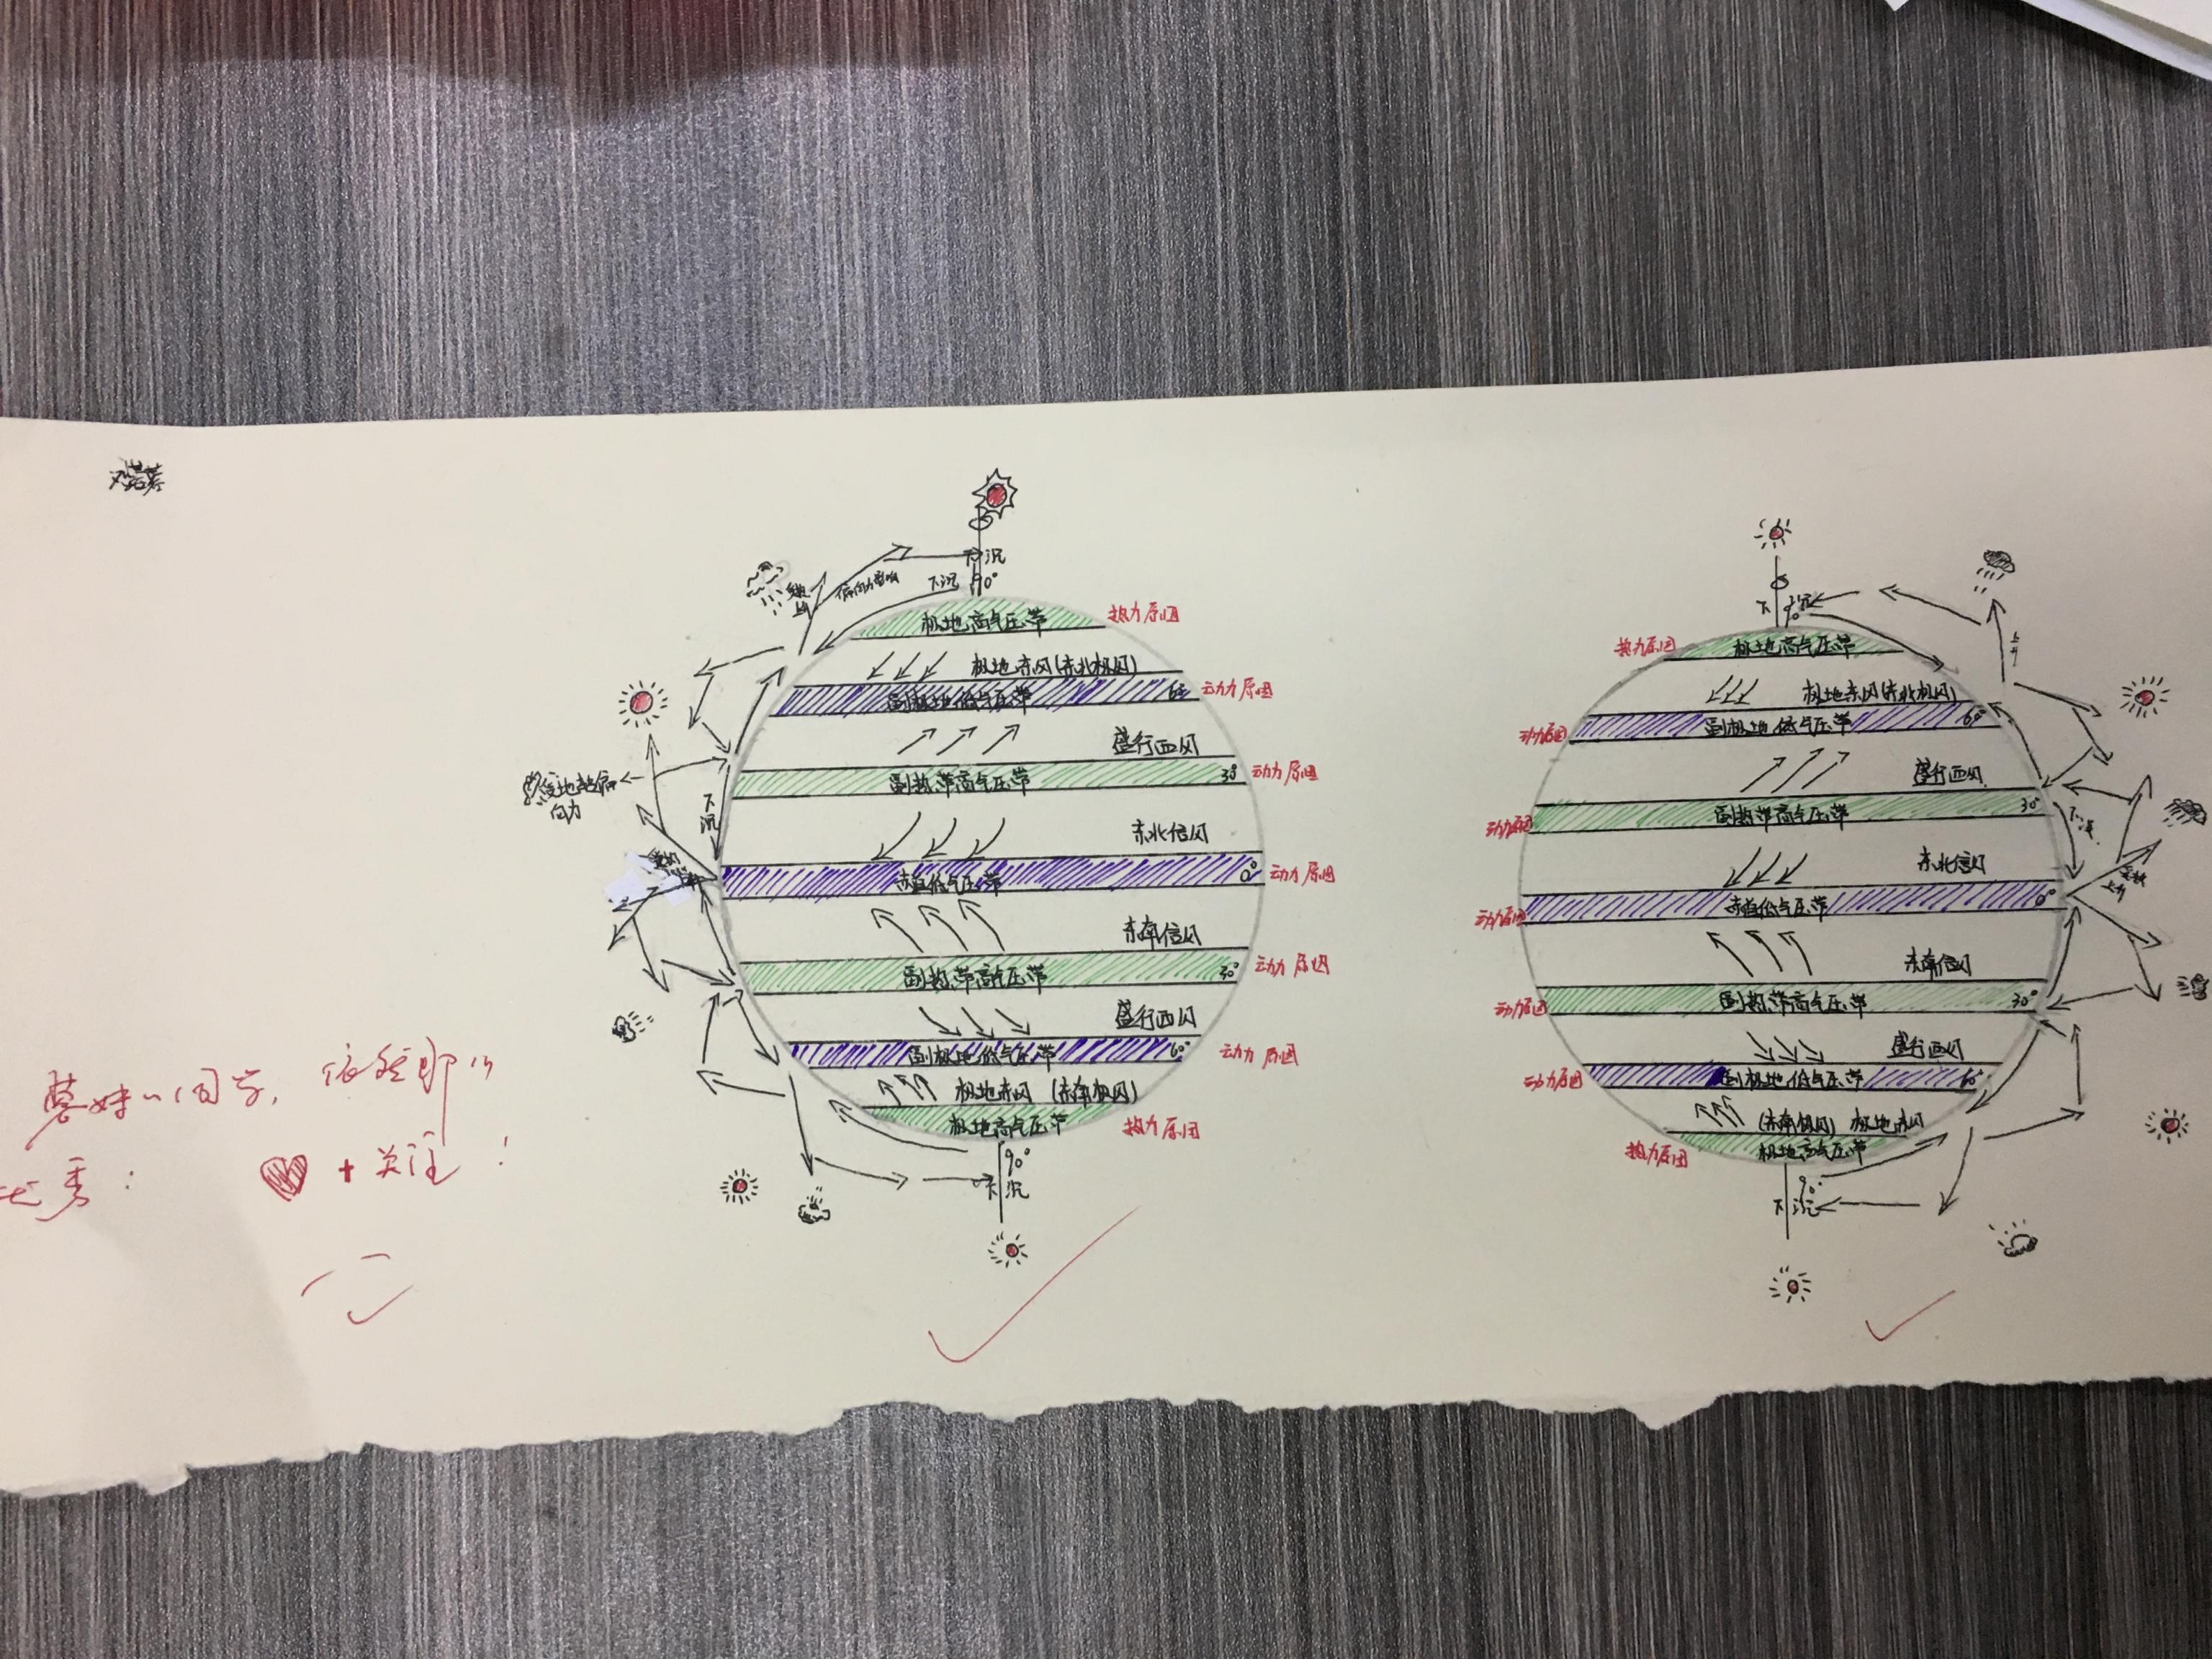 下沉
下沉 90°
偏向力影响
极地高气压带 热力原因
极地东风(东北极风)
副极地低气压带 60° 动力原因
盛行西风
副热带高气压带 30° 动力原因
下沉
东北信风
赤道低气压带 0° 动力原因
东南信风
副热带高气压带 30° 动力原因
盛行西风
副极地低气压带 60° 动力原因
极地东风 (东南极风)
极地高气压带 热力原因
90°
下沉
下沉
90°
上升
热力原因 极地高气压带
极地东风(东北极风)
动力原因 副极地低气压带 60°
盛行西风
动力原因 副热带高气压带 30°
下沉
东北信风
动力原因 赤道低气压带 0°
受热
上升
东南信风
动力原因 副热带高气压带 30°
盛行西风
动力原因 副极地低气压带 60°
(东南极风) 极地东风
热力原因 极地高气压带
90°
下沉
同学, 依然那么
优秀:
+ 关注!